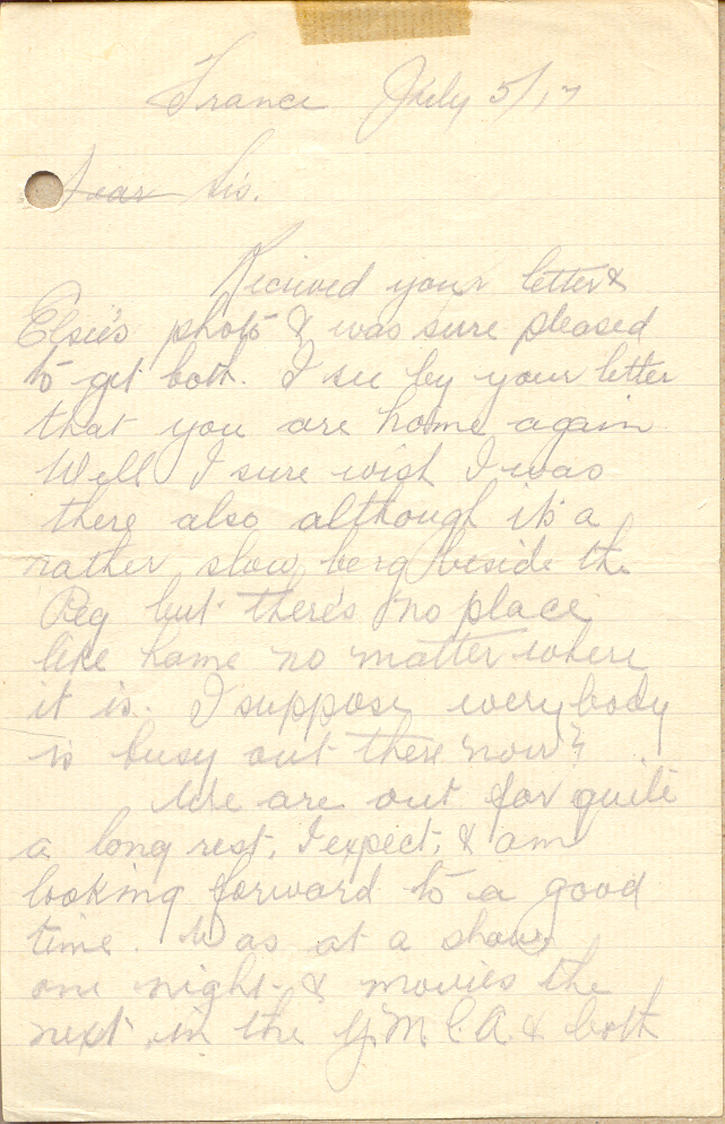 France July 5/17
Dear Sis.
Recieved your letter &
Elsie's photo & was sure pleased
to get both. I see by your letter
that you are home again
Well I sure wish I was
there also although it's a
rather slow berg beside the
Peg but there's no place
like home no matter where
it is. I suppose everybody
is busy out there now?
We are out for quite
a long rest, I expect, & am
looking forward to a good
time. Was at a show
one night & movies the
next in the Y.M.C.A. & both